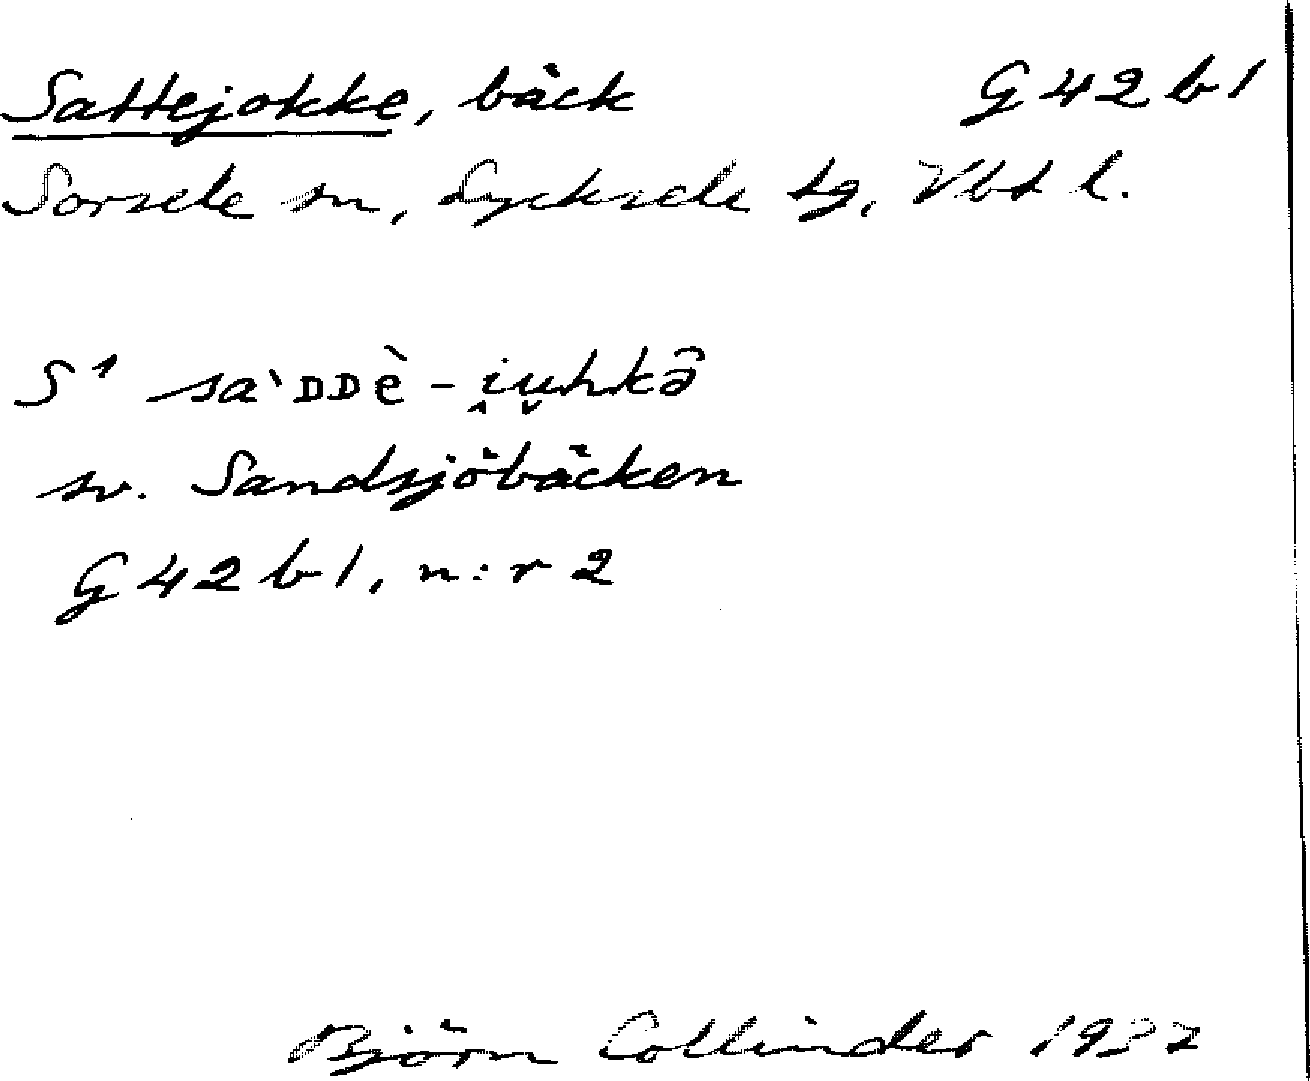 Sattejokke, bäck G 42 b 1
Sorsele sn, Lycksele tg, Vbt l.
S¹ sa`ᴅᴅè - i̭u̯hkə̂
sv. Sandsjöbäcken
G 42 b 1, n:r 2
Björn Collinder 1937